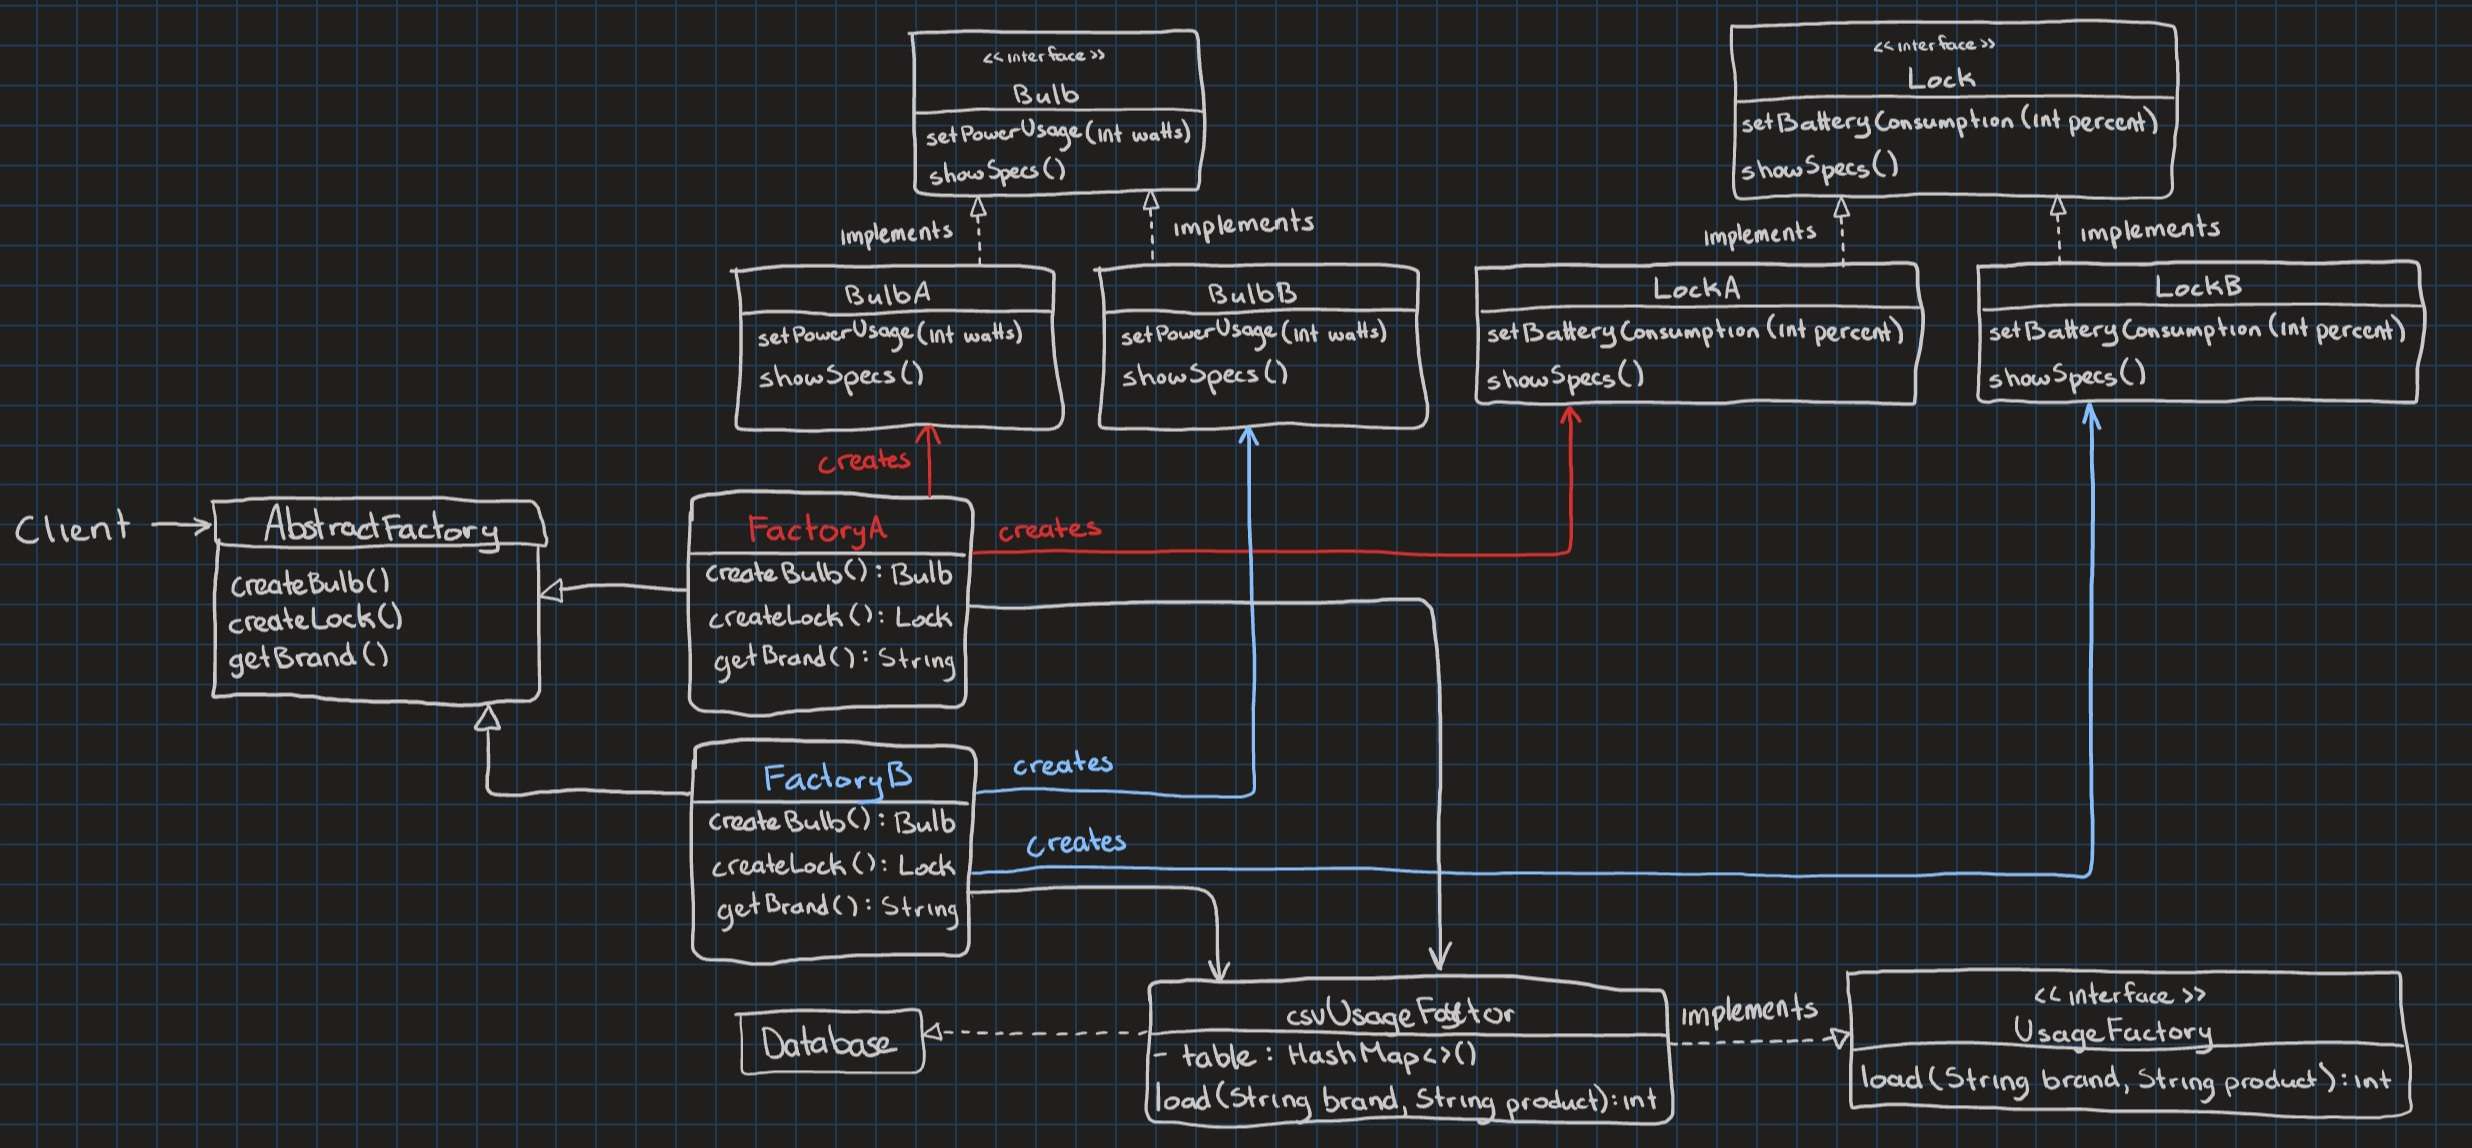 <<interface>>
Bulb
setPowerUsage(int watts)
showSpecs()
<<interface>>
Lock
setBatteryConsumption(int percent)
showSpecs()
implements
implements
implements
implements
BulbA
setPowerUsage(int watts)
showSpecs()
BulbB
setPowerUsage(int watts)
showSpecs()
LockA
setBatteryConsumption(int percent)
showSpecs()
LockB
setBatteryConsumption(int percent)
showSpecs()
creates
Client
AbstractFactory
createBulb()
createLock()
getBrand()
FactoryA
createBulb(): Bulb
createLock(): Lock
getBrand(): String
creates
FactoryB
createBulb(): Bulb
createLock(): Lock
getBrand(): String
creates
creates
Database
- table: HashMap<>()
load(String brand, String product): int
implements
<<interface>>
UsageFactory
load(String brand, String product): int